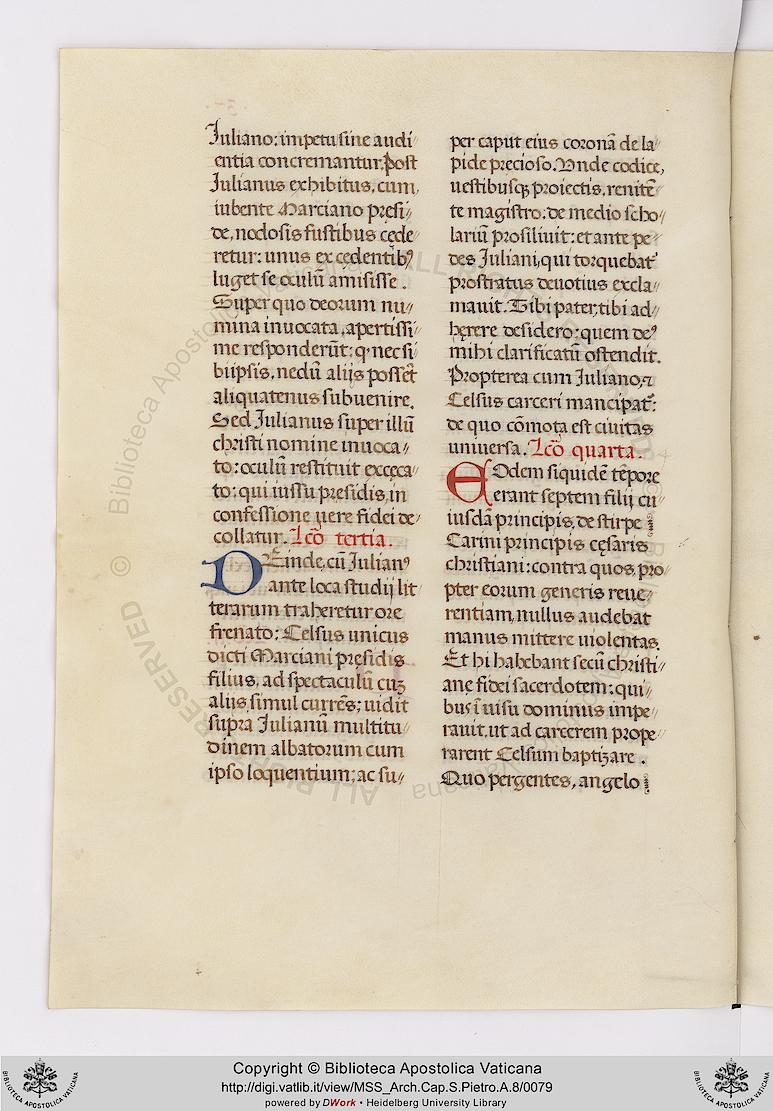 Iuliano: impetu siue audi
entia concremantur. Post
Iulianus exhibitus, cum,
iubente Marciano presi
de, nodosis fustibus cęde
retur: unus ex cędentibꝰ
luget se oculū amisisse.
Super quo deorum nu
mina inuocata, apertissi
me responderūt: q nec si
bi ipsis, nedū aliis possēt
aliquatenus subuenire.
Sed Iulianus super illū
christi nomine inuoca
to: oculū restituit excęca
to: qui iussu pręsidis, in
confessione uere fidei de
collatur. Lc̄o tertia.
DEinde, cū Iulianꝰ
ante loca studij lit
terarum traheretur ore
frenato: Celsus unicus
dicti Marciani pręsidis
filius, ad spectaculū cuꝫ
aliis simul currēs; uidit
supra Iulianū multitu
dinem albatorum cum
ipso loquentium; ac su
per caput eius coronā de la
pide precioso. Vnde codice,
uestibusqꝫ proiectis, renitē
te magistro: de medio scho
lariū prosiliuit: et ante pe
des Iuliani, qui torquebat᷑
prostratus deuotius excla
mauit. Tibi pater, tibi ad
hęrere desidero: quem deꝰ
mihi clarificatū ostendit.
Propterea cum Iuliano, ⁊
Celsus carceri mancipat᷑:
de quo cōmota est ciuitas
uniuersa. Lc̄o quarta.
EOdem siquidē tēpore
erant septem filij cu
iusdā principis, de stirpe
Carini principis cęsaris
christiani: contra quos, pro
pter eorum generis reue
rentiam, nullus audebat
manus mittere uiolentas.
Et hi habebant secū christi
anę fidei sacerdotem: qui
bus ī uisu dominus impe
rauit, ut ad carcerem prope
rarent Celsum baptizare.
Quo pergentes, angelo
Copyright © Biblioteca Apostolica Vaticana
http://digi.vatlib.it/view/MSS_Arch.Cap.S.Pietro.A.8/0079
powered by DWork • Heidelberg University Library
BIBLIOTECA APOSTOLICA VATICANA
BIBLIOTECA APOSTOLICA VATICANA